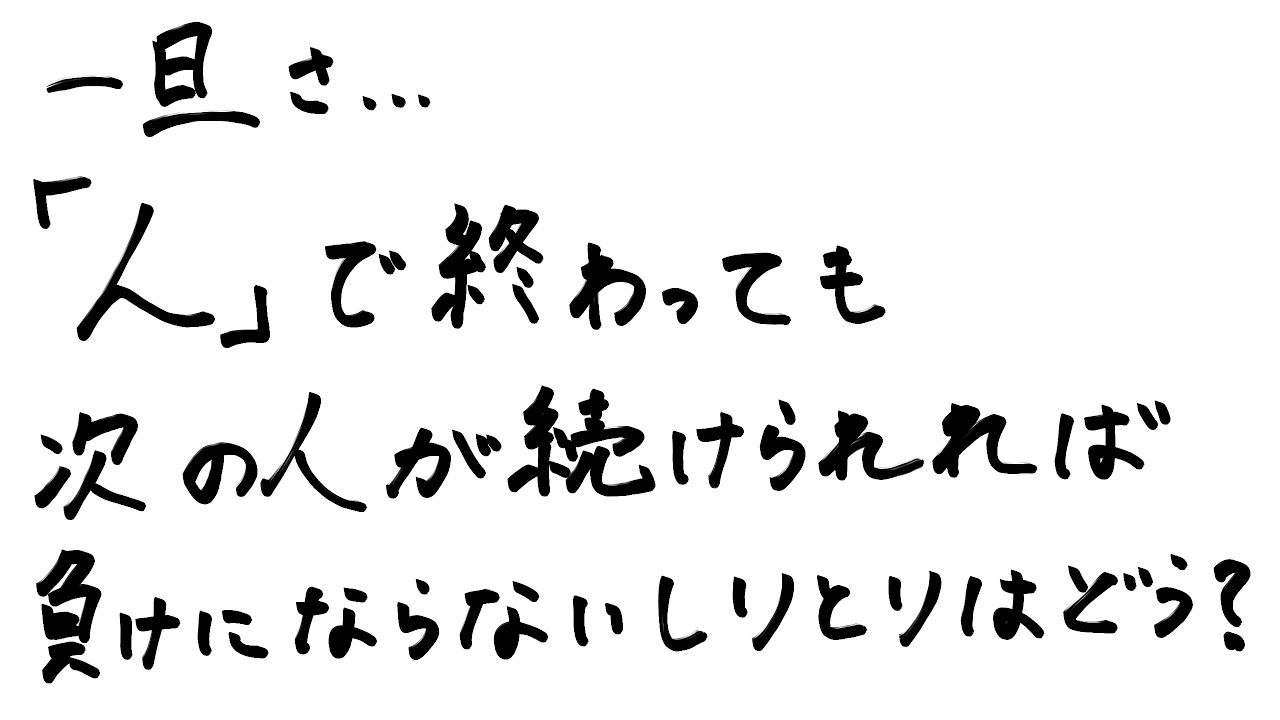 一旦さ...
「人」で終わっても
次の人が続けられれば
負けにならないしりとりはどう?